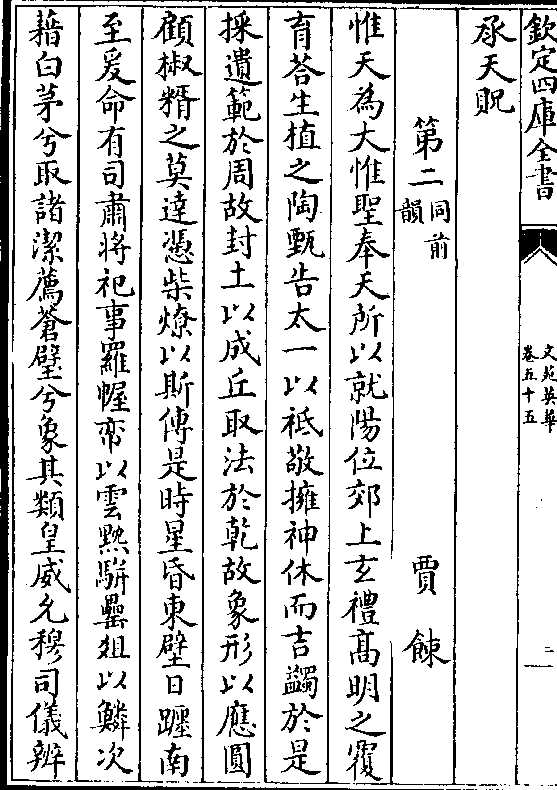 欽定四庫全書
文苑英華
卷五十五
二
承天貺
第二同前韻
賈餗
惟天為大惟聖奉天所以就陽位郊上玄禮髙明之覆
育荅生植之陶甄告太一以祗敬擁神休而吉蠲於是
採遺範於周故封土以成丘取法於乾故象形以應圓
顧椒糈之莫達憑柴燎以斯傳是時星昏東壁日躔南
至爰命有司肅將祀事羅幄帟以雲㸃駢罍俎以鱗次
藉白茅兮取諸潔薦蒼璧兮象其類皇威允穆司儀辨